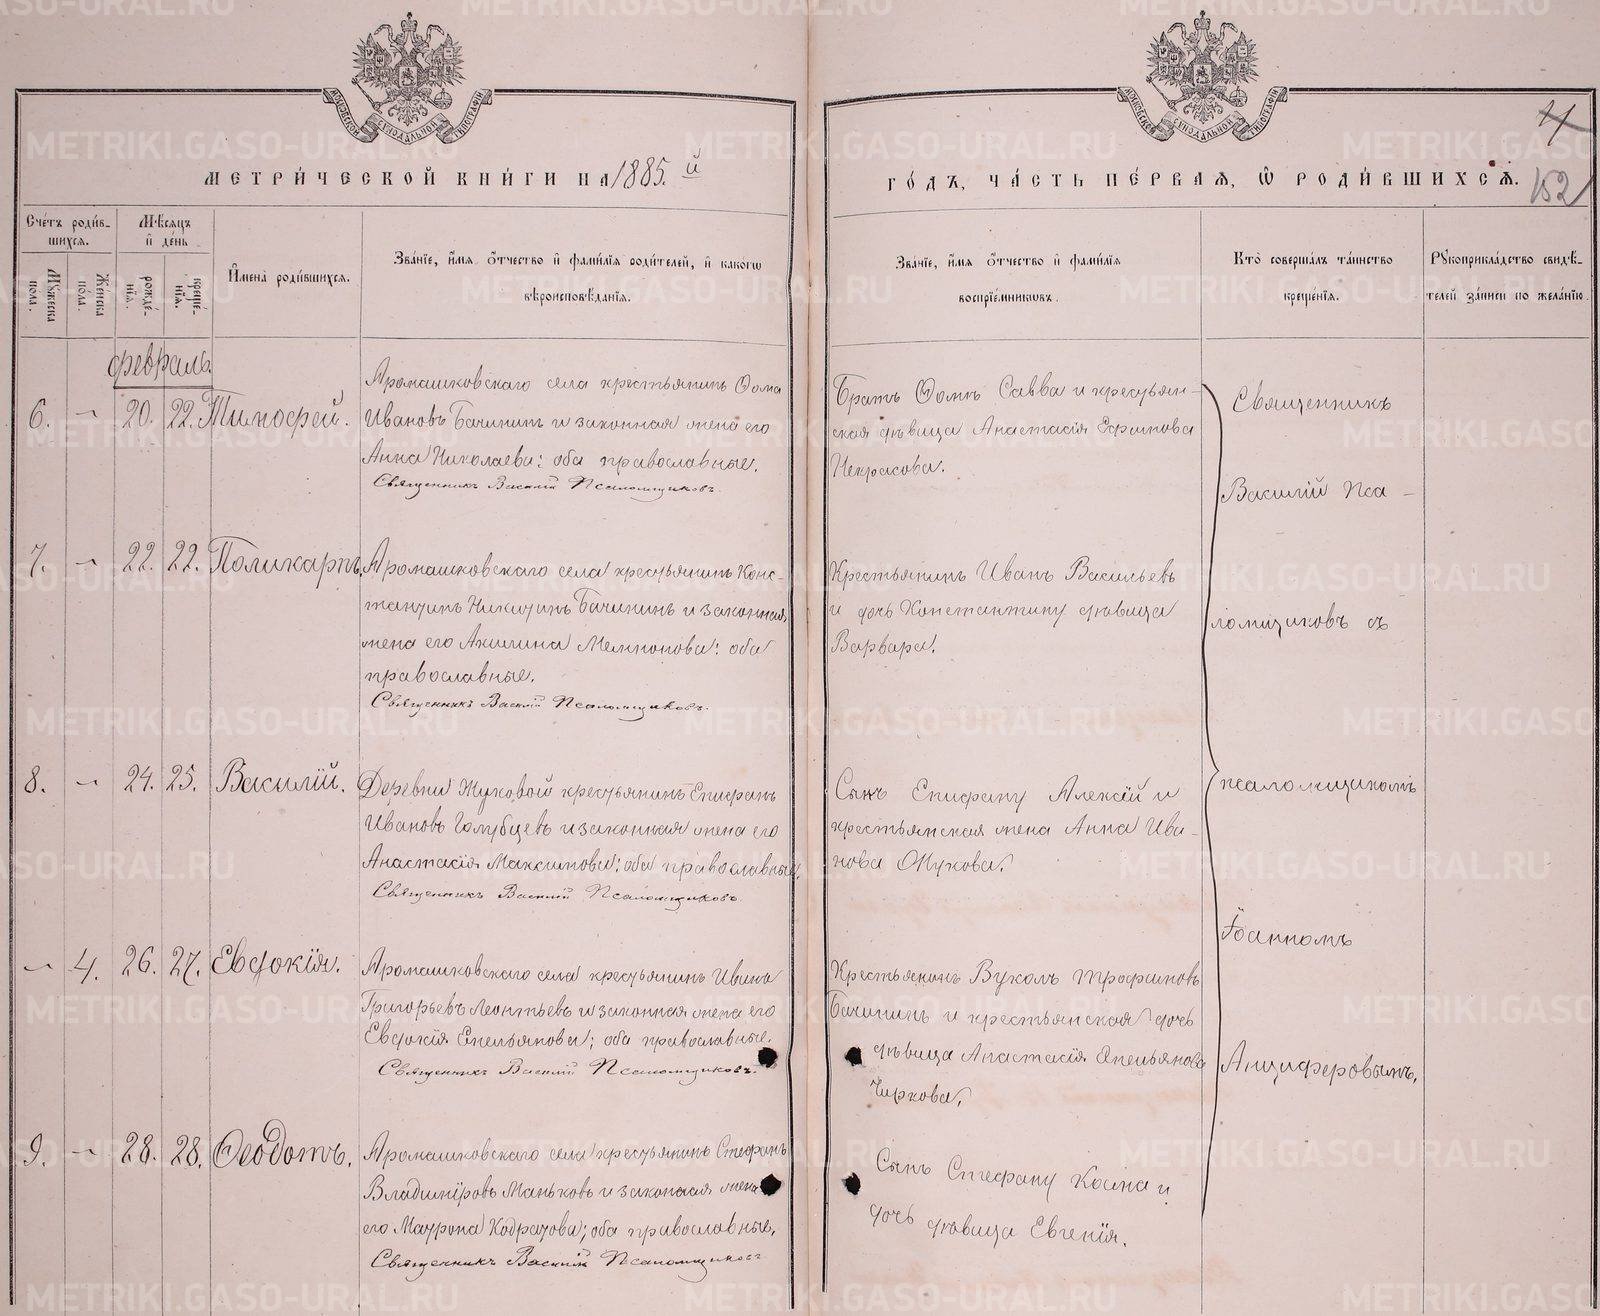 МЕТРИ́ЧЕСКОЙ КНИ́ГИ НА 1885.й
ГО́ДЪ, ЧА́СТЬ ПЕ́РВАЯ, Ѡ РОДИ́ВШИХСѦ.
4
152
Сче́тъ роди́в-
шихся.
Мѣ́сяцъ
и҆ де́нь
Му́жеска
по́ла.
Же́нска
по́ла.
рожде́-
нїѧ.
креще́-
нїѧ.
И҆мена̀ роди́вшихся.
Зва́нїе, и҆́мѧ ѻ҆́тчество и҆ фами́лїѧ роди́телей, и҆ како́гѡ
вѣроисповѣ́данїѧ.
Зва́нїе, и҆́мѧ ѻ҆́тчество и҆ фами́лїѧ
воспрїе́мниковъ.
Кто̀ соверша́лъ та́инство
креще́нїѧ.
Рꙋкоприкла́дство свидѣ́-
телей за́писи по жела́нїю.
февраль
6. – 20. 22. Тимоѳей.
Аромашковскаго села крестьянинъ Ѳома
Ивановъ Бачининъ и законная жена его
Анна Николаева: оба православные.
Священникъ Василій Псаломщиковъ.
Братъ Ѳомы Савва и крестьян-
ская дѣвица Анастасія Ефимова
Некрасова.
7. – 22. 22. Поликарпъ.
Аромашковскаго села крестьянинъ Конс-
тантинъ Никитинъ Бачининъ и законная
жена его Акилина Мемнонова: оба
православные.
Священникъ Василій Псаломщиковъ.
Крестьянинъ Иванъ Васильевъ
и дочь Константину дѣвица
Варвара.
8. – 24. 25. Василій.
Деревни Жуковой крестьянинъ Епифанъ
Ивановъ Голубцевъ и законная жена его
Анастасія Максимова: оба православные.
Священникъ Василій Псаломщиковъ.
Сынъ Епифану Алексій и
крестьянская жена Анна Ива-
нова Жукова.
– 4. 26. 27. Евдокія.
Аромашковскаго села крестьянинъ Иванъ
Григорьевъ Леонтьевъ и законная жена его
Евдокія Емельянова; оба православные.
Священникъ Василій Псаломщиковъ.
Крестьянинъ Вуколъ Трофимовъ
Бачининъ и крестьянская дочь
дѣвица Анастасія Емельянова
Чиркова.
9. – 28. 28. Ѳеодотъ.
Аромашковскаго села крестьянинъ Стефанъ
Владиміровъ Маньковъ и законная жена
его Матрона Кодратова; оба православные.
Священникъ Василій Псаломщиковъ
Сынъ Стефану Косма и
дочь дѣвица Евгенія.
Священникъ
Василій Пса-
ломщиковъ съ
псаломщикомъ
Іоанномъ
Анциферовымъ.
METRIKI.GASO-URAL.RU